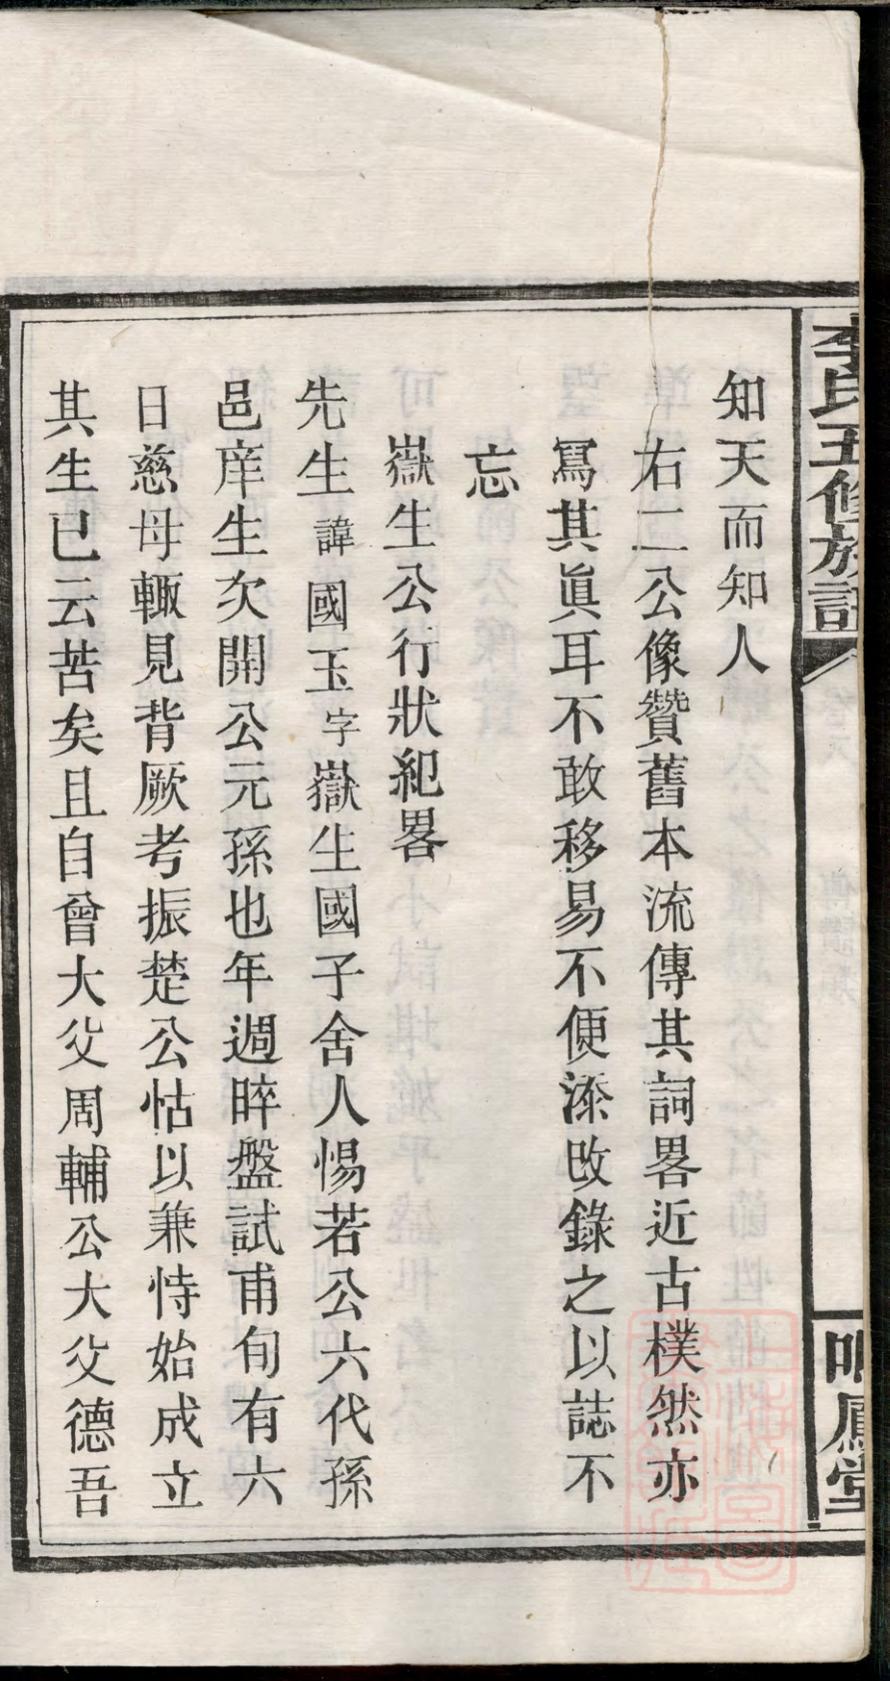 李氏五修族譜
鳴鳳堂
知天而知人
右二公像贊舊本流傳其詞畧近古樸然亦
寫其眞耳不敢移易不便添改錄之以誌不
忘
嶽生公行狀紀畧
先生諱國玉字嶽生國子舍人惕若公六代孫
邑庠生次開公元孫也年週晬盤試甫旬有六
日慈母輙見背厥考振楚公怙以兼恃始成立
其生已云苦矣且自曾大父周輔公大父德吾